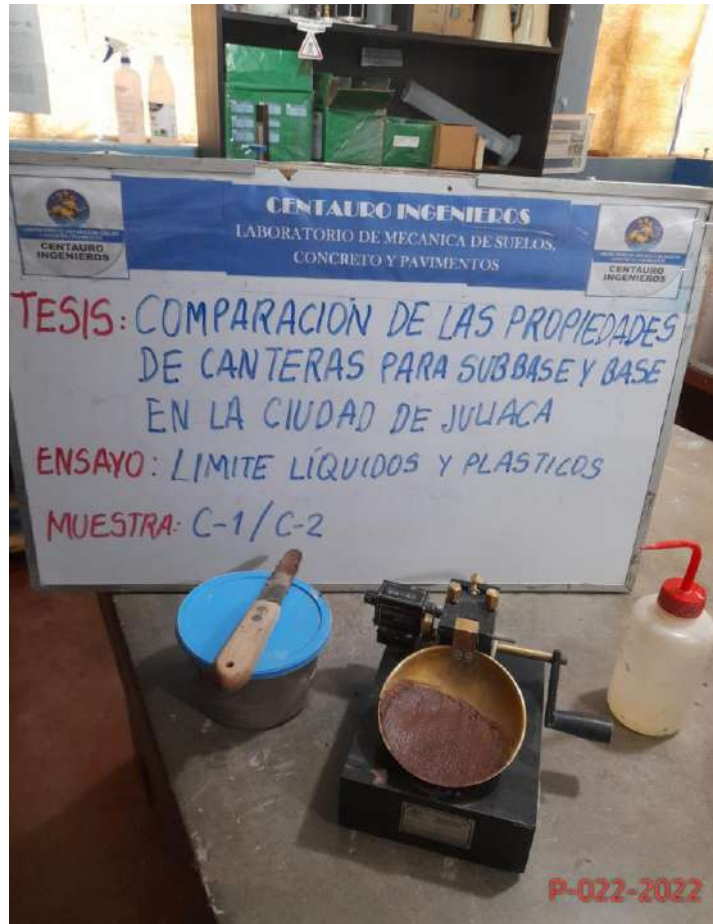 CENTAURO INGENIEROS
LABORATORIO DE MECANICA DE SUELOS,
CONCRETO Y PAVIMENTOS
CENTAURO
INGENIEROS
CENTAURO
INGENIEROS
TESIS: COMPARACIÓN DE LAS PROPIEDADES
DE CANTERAS PARA SUBBASE Y BASE
EN LA CIUDAD DE JULIACA
ENSAYO: LIMITE LÍQUIDOS Y PLASTICOS
MUESTRA: C-1/C-2
P-022-2022